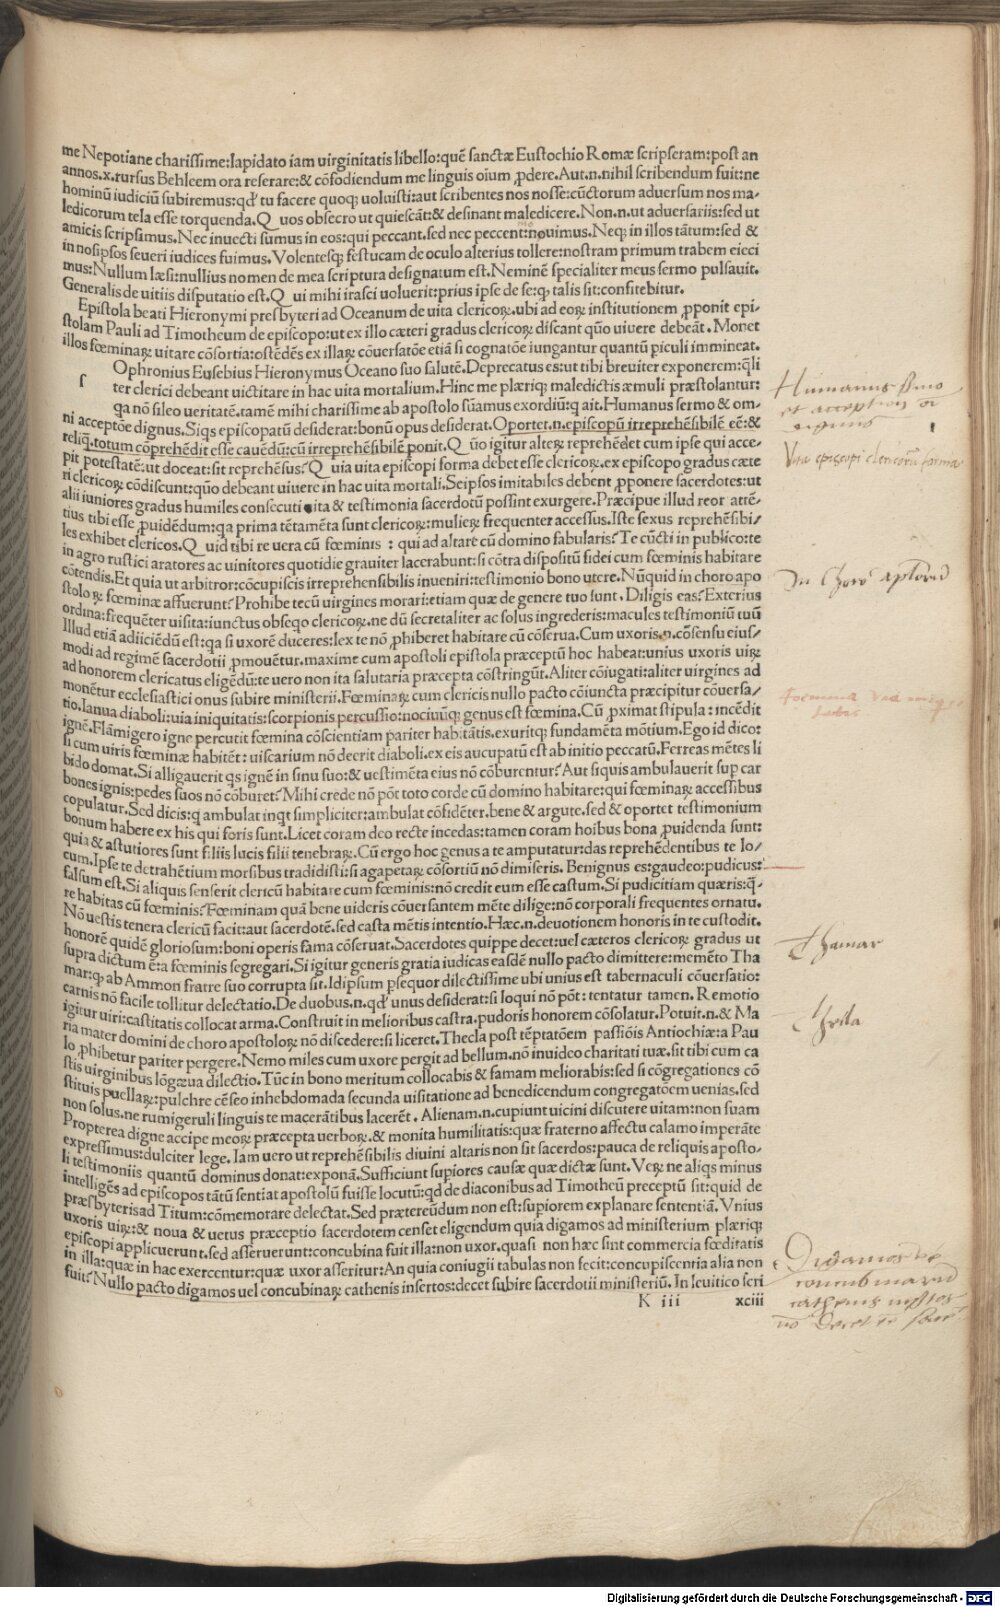 me Nepotiane charissime:lapidato iam uirginitatis libello:quē sanctæ Eustochio Romæ scripseram:post an
annos.x.rursus Bethleem ora reserare:& cōfodiendum me linguis oium ꝓdere.Aut.n.nihil scribendum fuit:ne
hominū iudiciū subiremus:qđ tu facere quoqꝫ uoluisti:aut scribentes nos nosse:cūctorum aduersum nos ma-
ledicorum tela esse torquenda.Q uos obsecro ut quiescāt:& desinant maledicere.Non.n.ut aduersariis:sed ut
amicis scripsimus.Nec inuecti sumus in eos:qui peccant.sed nec peccent:nouimus.Neqꝫ in illos tātum:sed &
in nosipsos seueri iudices fuimus.Volentesqꝫ festucam de oculo alterius tollere:nostram primum trabem eieci
mus:Nullum læsi:nullius nomen de mea scriptura designatum est.Neminē specialiter meus sermo pulsauit.
Generalis de uitiis disputatio est.Q ui mihi irasci uoluerit:prius ipse de se:qꝫ talis sit:confitebitur.
Epistola beati Hieronymi presbyteri ad Oceanum de uita clericoꝝ.ubi ad eoꝝ institutionem ꝓponit epi-
stolam Pauli ad Timotheum de episcopo:ut ex illo cæteri gradus clericoꝝ discant qūo uiuere debeāt.Monet
illos fœminaꝝ uitare cōsortia:ostēdēs ex illaꝝ cōuersatōe etiā si cognatōe iungantur quantū piculi immineat.
s Ophronius Eusebius Hieronymus Oceano suo salutē.Deprecatus es:ut tibi breuiter exponerem:q̄li
ter clerici debeant uictitare in hac uita mortalium.Hinc me plæriqꝫ maledictis æmuli præstolantur:
qa nō sileo ueritatē.tamē mihi charissime ab apostolo sūamus exordiū:q ait.Humanus sermo & om-
ni acceptōe dignus.Siqs episcopatū desiderat:bonū opus desiderat.Oportet.n.episcopū irreprehēsibilē eē:&
reliq̄.totum cōprehēdit esse cauēdū:cū irreprehēsibilē ponit.Q ūo igitur alteꝝ reprehēdet cum ipse qui acce-
pit potestatē:ut doceat:sit reprehēsus?Q uia uita episcopi forma debet esse clericoꝝ.ex episcopo gradus cæte
ri clericoꝝ cōdiscunt:qūo debeant uiuere in hac uita mortali.Seipsos imitabiles debent ꝓponere sacerdotes:ut
alii iuniores gradus humiles consecuti ita & testimonia sacerdotū possint exurgere.Præcipue illud reor attē-
tius tibi esse ꝓuidēdum:qa prima tētamēta sunt clericoꝝ:mulieꝝ frequenter accessus.Iste sexus reprehēsibi-
les exhibet clericos.Q uid tibi re uera cū fœminis : qui ad altare cū domino fabularis?Te cūcti in publico:te
in agro rustici aratores ac uinitores quotidie grauiter lacerabunt:si cōtra dispositū fidei cum fœminis habitare
cōtendis.Et quia ut arbitror:cōcupiscis irreprehensibilis inueniri:testimonio bono utere.Nūquid in choro apo
stoloꝝ fœminæ affuerunt?Prohibe tecū uirgines morari:etiam quæ de genere tuo sunt.Diligis eas?Exterius
ordina:frequēter uisita:iunctus obseqo clericoꝝ.ne dū secretaliter ac solus ingrederis:macules testimoniū tuū
Illud etiā adiiciēdū est:qa si uxorē duceres:lex te nō ꝓhiberet habitare cū cōserua.Cum uxoris.n.cōsensu eius-
modi ad regimē sacerdotii ꝓmouētur.maxime cum apostoli epistola præceptū hoc habeat:unius uxoris uiꝝ
ad honorem clericatus eligēdū:te uero non ita salutaria præcepta cōstringūt.Aliter cōiugati:aliter uirgines ad
monētur ecclesiastici onus subire ministerii.Fœminaꝝ cum clericis nullo pacto cōiuncta præcipitur cōuersa-
tio.Ianua diaboli:uia iniquitatis:scorpionis percussio:nociuūqꝫ genus est fœmina.Cū ꝓximat stipula:incēdit
ignē.Flāmigero igne percutit fœmina cōscientiam pariter habitātis.exuritqꝫ fundamēta mōtium.Ego id dico:
si cum uiris fœminæ habitēt: uiscarium nō deerit diaboli.ex eis aucupatū est ab initio peccatū.Ferreas mētes li
bido domat.Si alligauerit qs ignē in sinu suo:& uestimēta eius nō cōburentur?Aut siquis ambulauerit sup car
bones ignis:pedes suos nō cōburet?Mihi crede nō pōt toto corde cū domino habitare:qui fœminaꝝ accessibus
copulatur.Sed dicis:q ambulat inqt simpliciter:ambulat cōfidēter.bene & argute.sed & oportet testimonium
bonum habere ex his qui foris sunt.Licet coram deo recte incedas:tamen coram hoibus bona ꝓuidenda sunt:
quia & astutiores sunt filiis lucis filii tenebraꝝ.Cū ergo hoc genus a te amputatur:das reprehēdentibus te lo-
cum.Ipse te detrahētium morsibus tradidisti:sū agapetaꝝ cōsortiū nō dimiseris. Benignus es:gaudeo:pudicus:
falsum est.Si aliquis senserit clericū habitare cum fœminis:nō credit eum esse castum.Si pudicitiam quæris:q̄-
re habitas cū fœminis?Fœminam quā bene uideris cōuersantem mēte dilige:nō corporali frequentes ornatu.
Nō uestis tenera clericū facit:aut sacerdotē.sed casta mētis intentio.Hæc.n.deuotionem honoris in te custodit.
honorē quidē gloriosum:boni operis fama cōseruat.Sacerdotes quippe decet:uel cæteros clericoꝝ gradus ut
supra dictum ē:a fœminis segregari.Si igitur generis gratia iudicas easdē nullo pacto dimittere:memēto Tha
mar:qꝫ ab Ammon fratre suo corrupta sit.Idipsum psequor dilectissime ubi unius est tabernaculi cōuersatio:
carnis nō facile tollitur delectatio.De duobus.n.qđ unus desiderat:si loqui nō pōt: tentatur tamen. Remotio
igitur uiri:castitatis collocat arma.Construit in melioribus castra.pudoris honorem cōsolatur.Potuit.n.& Ma
ria mater domini de choro apostoloꝝ nō discedere:si liceret.Thecla post tēptatōem passiōis Antiochiæ:a Pau
lo ꝓhibetur pariter pergere.Nemo miles cum uxore pergit ad bellum.nō inuideo charitati tuæ.sit tibi cum ca
stis uirginibus lōgæua dilectio.Tūc in bono meritum collocabis & famam meliorabis:sed si cōgregationes cō
stituis puellaꝝ:pulchre cēseo inhebdomada secunda uisitatione ad benedicendum congregatōem uenias.sed
non solus.ne rumigeruli linguis te macerātibus lacerēt. Alienam.n.cupiunt uicini discutere uitam:non suam
Propterea digne accipe meoꝝ præcepta uerboꝝ.& monita humilitatis:quæ fraterno affectu calamo imperāte
expressimus:dulciter lege. Iam uero ut reprehēsibilis diuini altaris non sit sacerdos:pauca de reliquis aposto-
li testimoniis quantū dominus donat:exponā.Sufficiunt supiores causæ quæ dictæ sunt.Veꝝ ne aliqs minus
intelligēs ad episcopos tātū sentiat apostolū fuisse locutū:qđ de diaconibus ad Timotheū preceptū sit:quid de
præsbyteris ad Titum:cōmemorare delectat.Sed prætereūdum non est:supiorem explanare sententiā.Vnius
uxoris uiꝝ:& noua & uetus præceptio sacerdotem censet eligendum quia digamos ad ministerium plæriqꝫ
episcopi applicuerunt.sed asseruerunt:concubina fuit illa:non uxor.quasi non hæc sint commercia fœditatis
in illa:quæ in hac exercentur:quæ uxor asseritur:An quia coniugii tabulas non fecit:concupiscentia alia non
fuit?Nullo pacto digamos uel concubinaꝝ cathenis insertos:decet subire sacerdotii ministeriū.In leuitico scri
K iii xciii
Humanus sermo
et acception
dignus
Vita episcopi clericorū forma
In choro aplorū
Foemina via iniqui
tatis
Thamar
Thecla
Digamos
concubinarū
cathenis insertos
nō decet
Digitalisierung gefördert durch die Deutsche Forschungsgemeinschaft - DFG